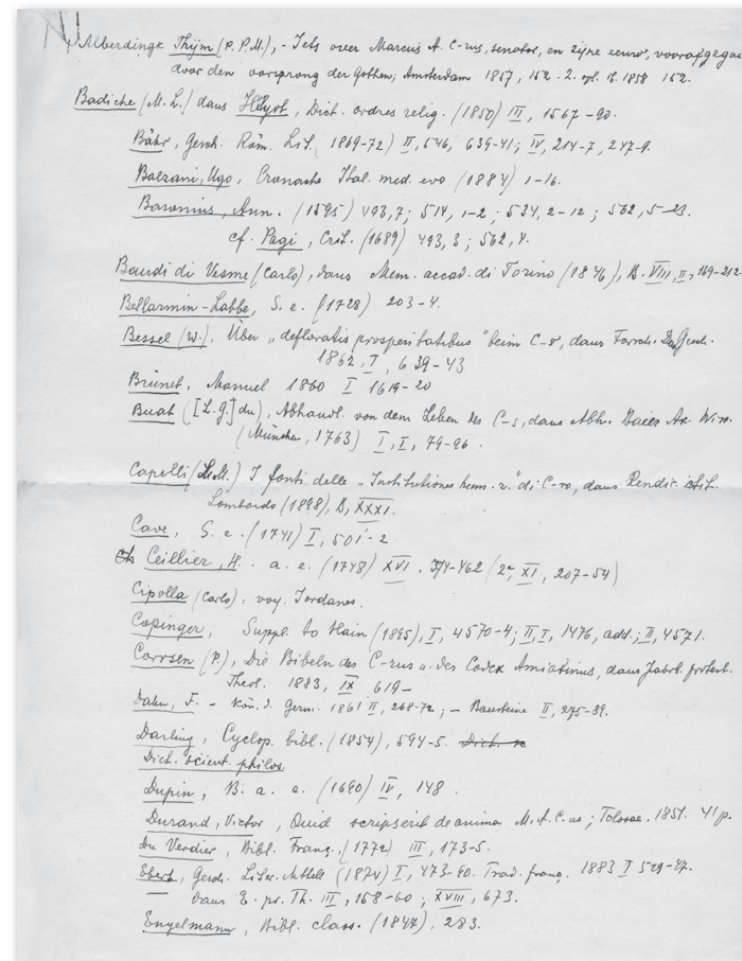 Alberdingk Thijm (P. P. M.), - Iets over Marcus A. C-rus, senator, en zijne eeuw, voorafgegaan
door den oorsprong der Gothen; Amsterdam 1857, 152. 2. 1858 152.
Badiche (M. L.) dans Hélyot, Dict. ordres relig. (1850) III, 1567-90.
Bähr, Gesch. Röm. Lit. (1869-72) II, 546, 639-41; IV, 214-7, 247-9.
Balzani, Ugo, Cronache Ital. med. evo (1884) 1-16.
Baronius, Ann. (1595) 493,7; 514, 1-2; 534, 2-12; 562, 5-23.
cf. Pagi, Crit. (1689) 493, 3; 562, 4.
Baudi di Vesme (Carlo), dans Mem. accad. di Torino (1846), B. VIII, II, 169-212.
Bellarmin-Labbe, S. e. (1728) 203-4.
Bessel (W.), Über „defloratis prosperitatibus" beim C-r, dans Forsch. Gesch.
1862, I, 639-43
Brunet, Manuel 1860 I 1619-20
Buat ([L. g.] du), Abhandl. von dem Leben des C-s, dans Abh. Baier Ak. Wiss.
(München, 1763) I, I, 79-96.
Capelli (L. M.) I fonti delle „Institutiones hum. r." di C-ro, dans Rendic. istit.
Lombardo (1898), B, XXXI.
Cave, S. e. (1741) I, 501-2
Ceillier, H. a. e. (1748) XVI. 374-462 (2ª, XI, 207-54)
Cipolla (Carlo), voy. Jordanes.
Copinger, Suppl. to Hain (1895), I, 4570-4; II, I, 1476, add.; II, 4571.
Corrsen (P.), Die Bibeln des C-rus u. des Codex Amiatinus, dans Jahrb. protest.
Theol. 1883, IX 619-
Dahn, F. - Kön. d. Germ. 1861 II, 268-72; - Bausteine II, 275-39.
Darling, Cyclop. bibl. (1854), 594-5. Dict. sc
Dict. scient. philos.
Dupin, B. a. e. (1690) IV, 148.
Durand, Victor, Quid scripserit de anima M. A. C-us; Tolosae. 1851. 41 p.
Du Verdier, Bibl. Franç. (1772) III, 173-5.
Ebert, Gesch. Liter. Mittelt (1874) I, 473-90. Trad. franç. 1883 I 529-47.
dans E. pr. Th. III, 158-60; XVIII, 673.
Engelmann, Bibl. class. (1847), 283.